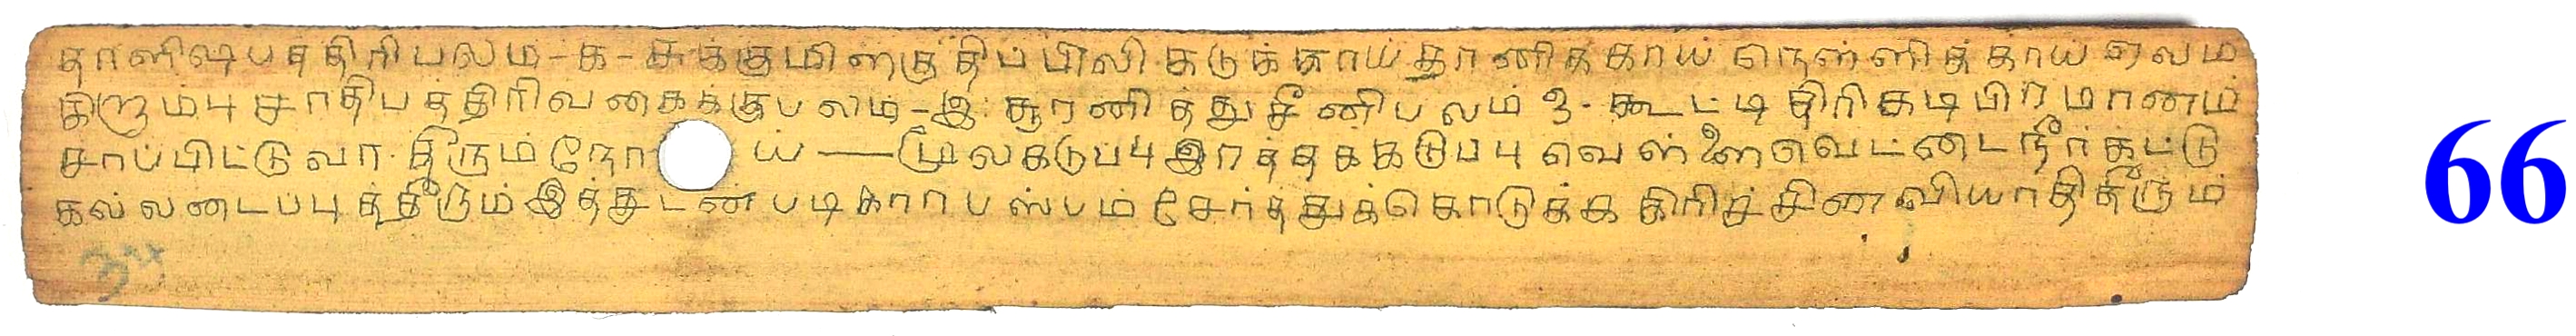 தாளிஷபத்திரிபலம் - க - சுக்குமிளகுதிப்பிலி கடுக்காய் தானிக்காய் நெள்ளிக்காய் ஏலம்
கிறாம்பு சாதிபத்திரிவகைக்குபலம் - இ சூரணித்து சீனிபலம் ௩ - கூட்டி திரிகடிபிரமாணம்
சாப்பிட்டு வர தீரும் நோய் — மூலகடுப்பு இரத்தக்கடுப்பு வெள்ளை வெட்டை நீர்கட்டு
கல்லடைப்புத்தீரும் இத்துடன் படிகாரபஸ்பம் சேர்த்துக்கொடுக்க கிரிச்சின வியாதிதீரும்
34
66